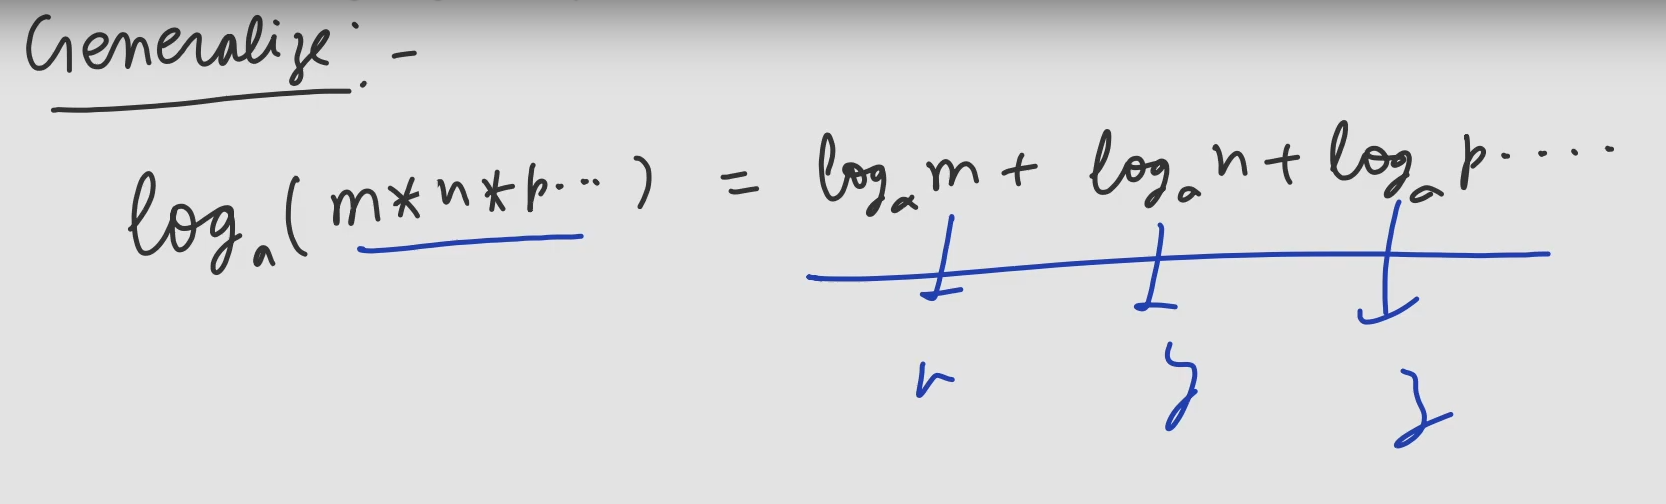 Generalize: -
logₐ(m*n*p...) = logₐ m + logₐ n + logₐ p....